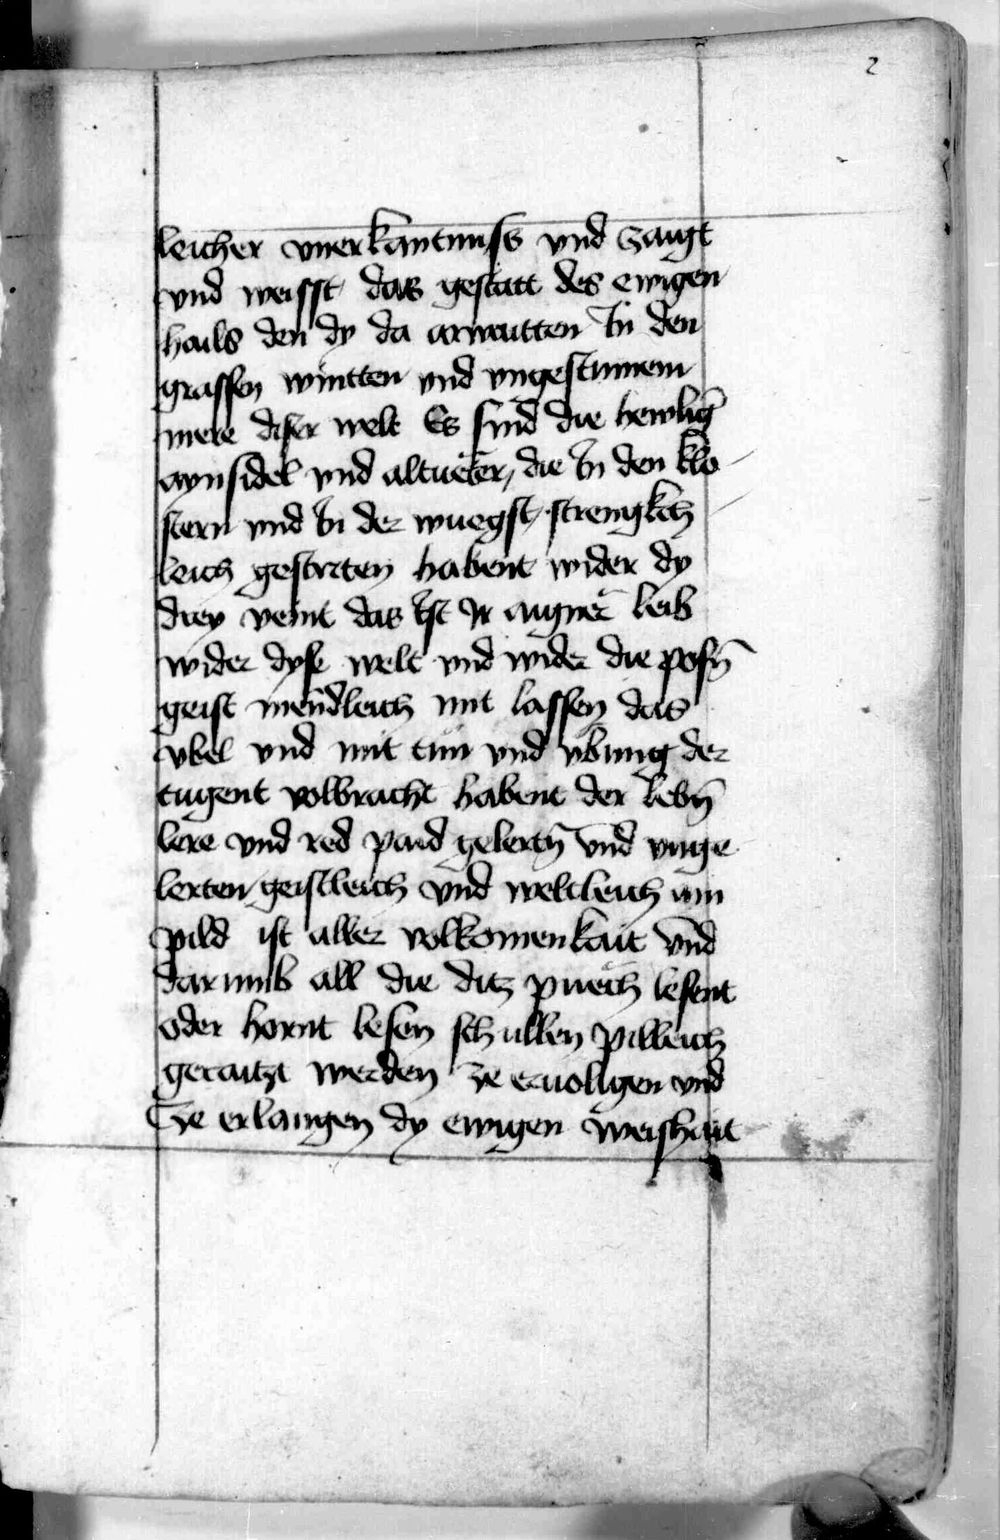 2
leicher vnerkantnuss vnd zaigt
vnd weisst das gestatt des ewigen
hails den dy da arwaitten In den
grassen wintten vnd vngestumem
mere diser welt Es sind die hewliḡ
aynsidel vnd altueter, die In den klo
stern vnd In der wuegst, strengkch
leich gestriten habent wider dy
drey veint das Ist Ir aigner leib
wider dyse welt vnd wider die posn̄
geist mendleich mit lassen das
vbel vnd mit tun vnd vbung der
tugent volbracht habent der lebn̄
lere vnd red paid gelertn̄ vnd vnge
lerten geistleich vnd weltleich ain
pild ist aller volkomenkait vnd
darumb all die ditz puech lesent
oder hornt lesen schullen pilleich
geraitzt werden ze eruolligen vnd
Ze erlangen dy ewigen weishait